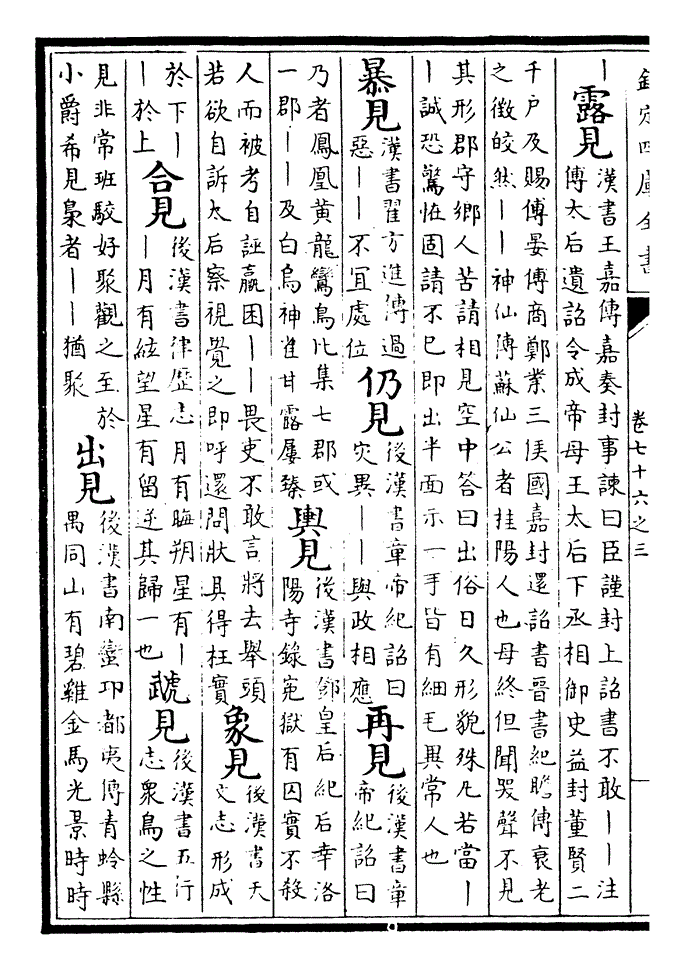 欽定四庫全書
卷七十六之三
丨露見漢書王嘉傳嘉奏封事諫曰臣謹封上詔書不敢丨丨注
傅太后遺詔令成帝母王太后下丞相御史益封董賢二
千户及賜傅晏傅商鄭業三侯國嘉封還詔書晉書紀瞻傳衰老
之徵皎然丨丨神仙傳蘇仙公者桂陽人也母終但聞哭聲不見
其形郡守鄉人苦請相見空中答曰出俗日久形貌殊凡若當丨
丨誠恐驚怪固請不已即出半面示一手皆有細毛異常人也
暴見漢書翟方進傳過
惡丨丨不宜處位
仍見後漢書章帝紀詔曰
災異丨丨與政相應
再見後漢書章
帝紀詔曰
乃者鳳凰黄龍鸞鳥比集七郡或
一郡丨丨及白烏神雀甘露屢臻
輿見後漢書鄧皇后紀后幸洛
陽寺錄寃獄有囚實不殺
人而被考自誣羸困丨丨畏吏不敢言將去舉頭
若欲自訴太后察視覺之即呼還問狀具得枉實
象見後漢書天
文志形成
於下丨
丨於上
合見後漢書律歴志月有晦朔星有丨
丨月有絃望星有留逆其歸一也
虣見後漢書五行
志衆鳥之性
見非常班駮好聚觀之至於
小爵希見梟者丨丨猶聚
出見後漢書南蠻卭都夷傳青蛉縣
禺同山有碧雞金馬光景時時